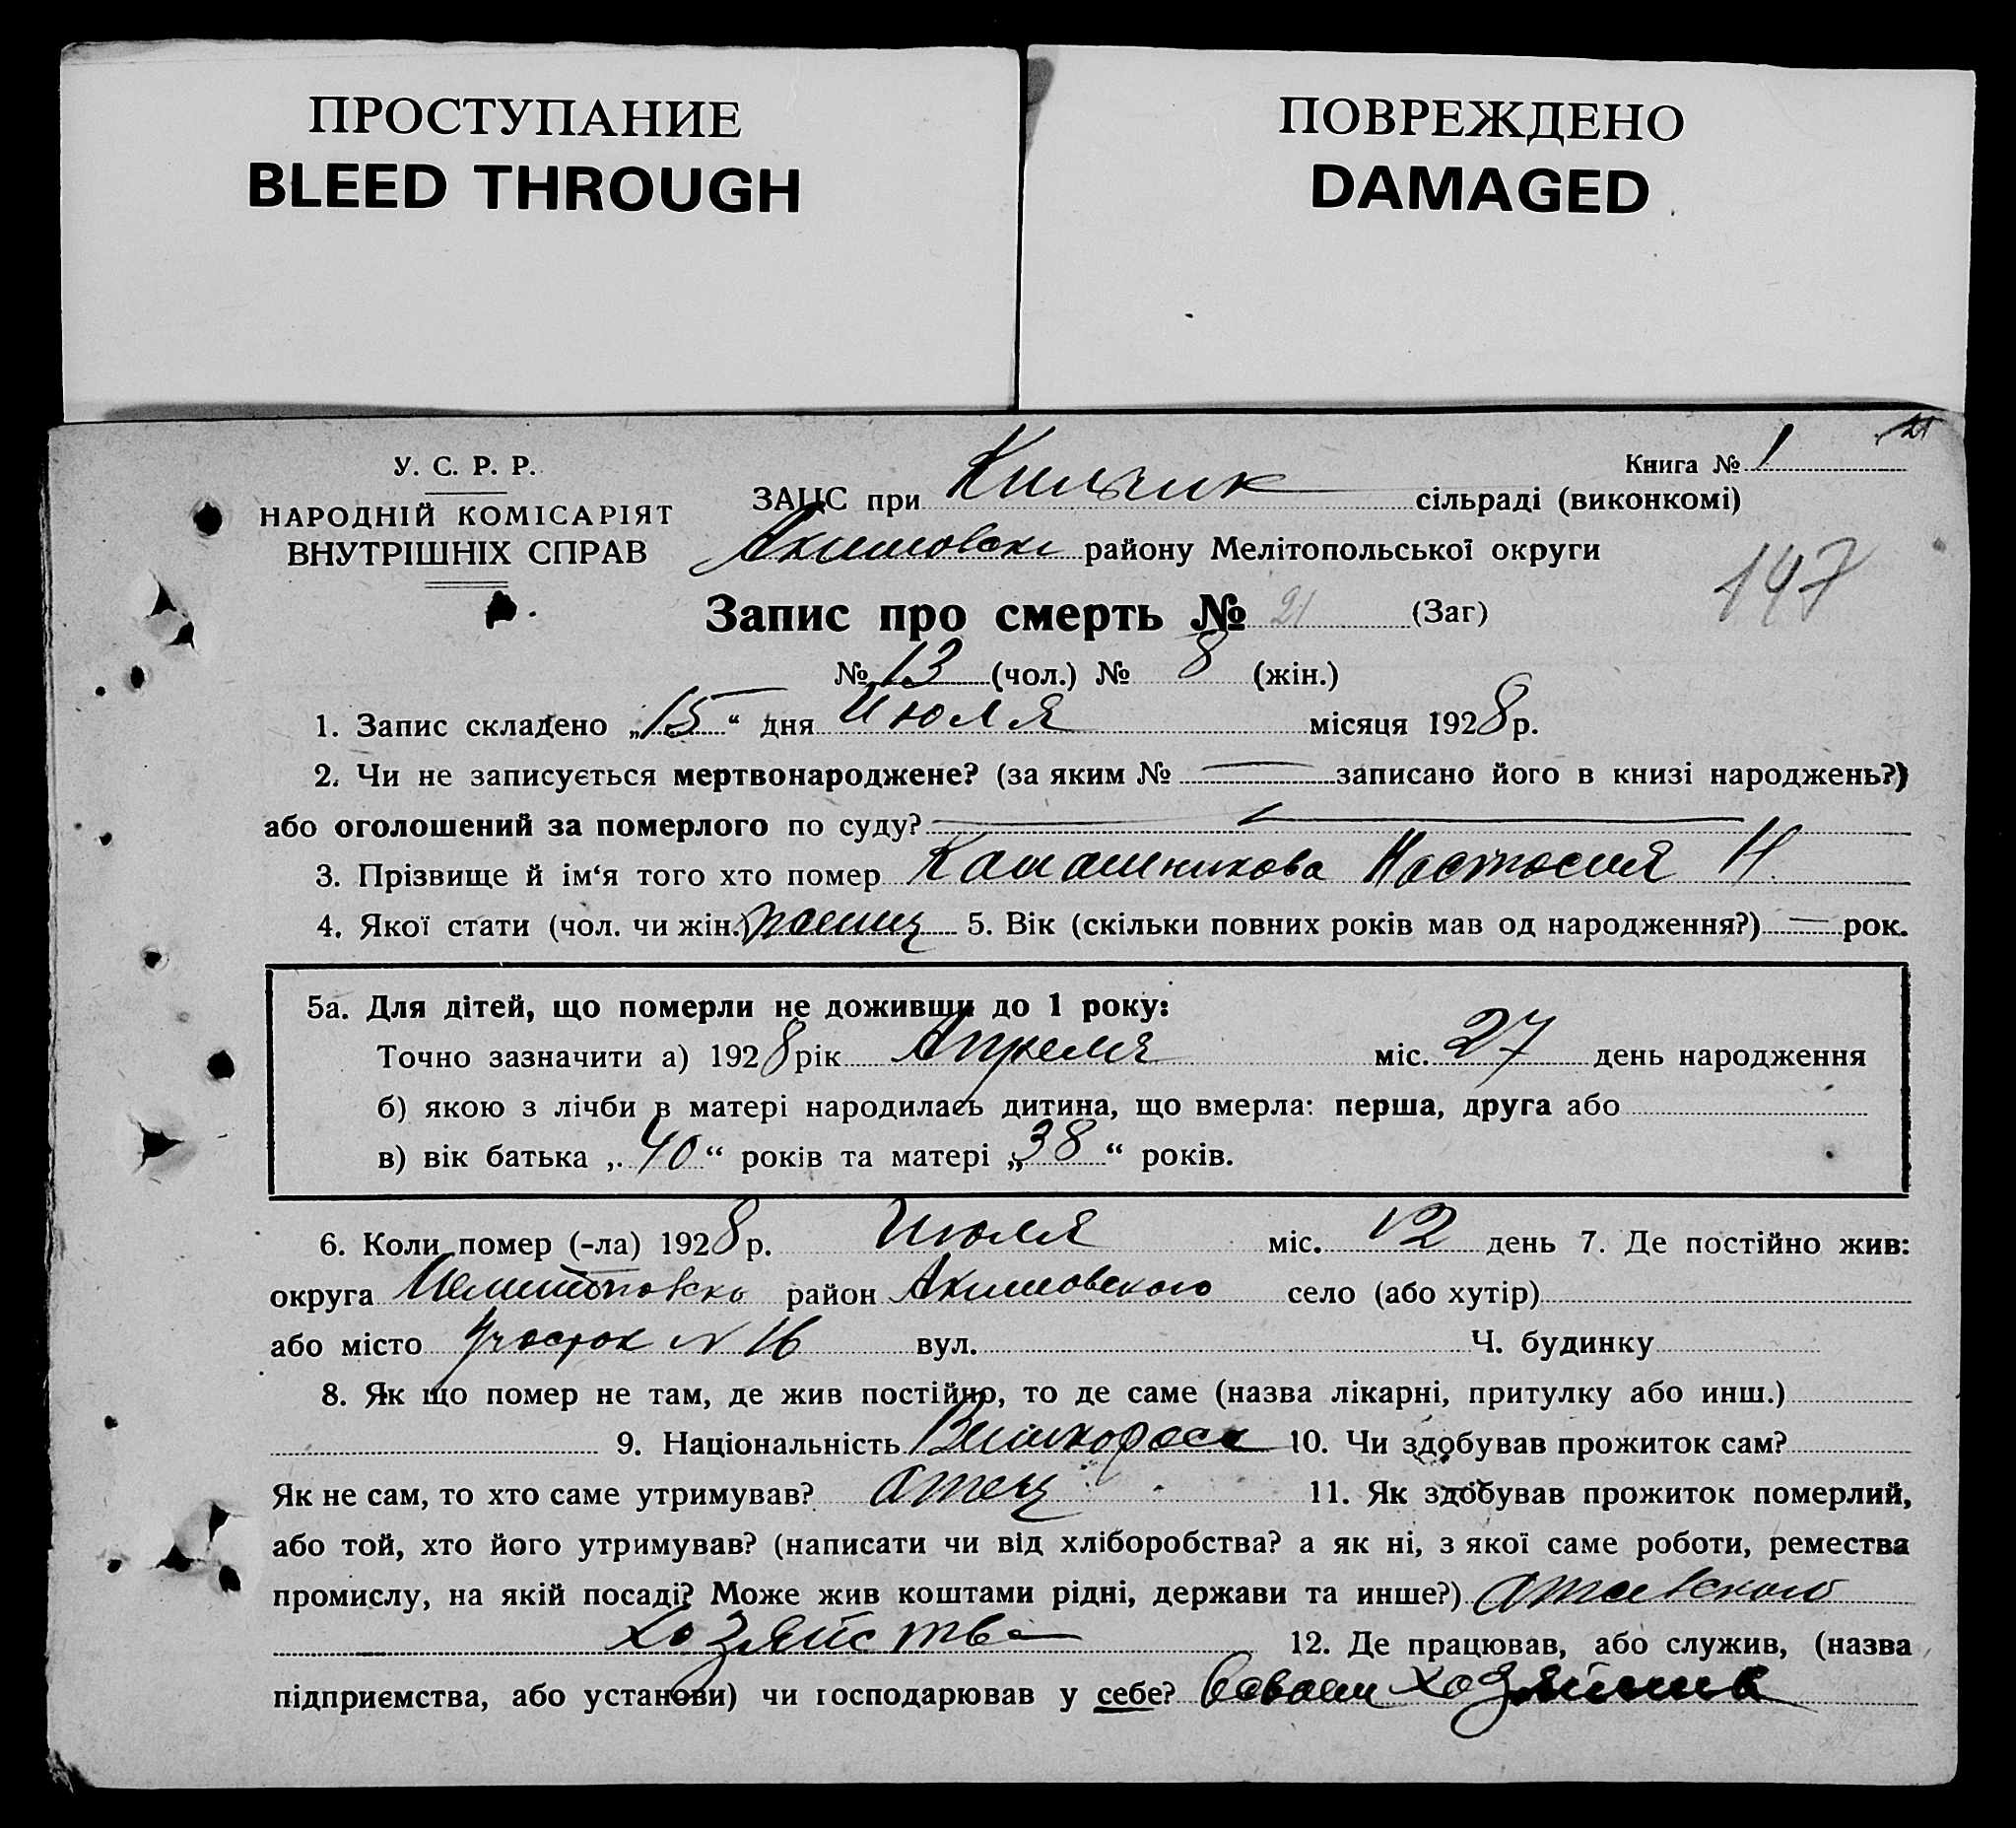 ПРОСТУПАНИЕ
BLEED THROUGH
ПОВРЕЖДЕНО
DAMAGED
У. С. Р. Р.
НАРОДНІЙ КОМІСАРІЯТ
ВНУТРІШНІХ СПРАВ
Книга № 1
21
ЗАЦС при сільраді (виконкомі)
Акимовск району Мелітопольської округи
147
Запис про смерть № 21 (Заг)
№ 13 (чол.) № 8 (жін.)
1. Запис складено „15“ дня Июля місяця 1928 р.
2. Чи не записується мертвонароджене? (за яким № — записано його в книзі народжень?)
або оголошений за померлого по суду? —
3. Прізвище й ім‘я того хто помер Настасия Н.
4. Якої стати (чол. чи жін.) 5. Вік (скільки повних років мав од народження?) — рок.
5а. Для дітей, що померли не доживши до 1 року:
Точно зазначити а) 1928 рік Апреля міс. 27 день народження
б) якою з лічби в матері народилась дитина, що вмерла: перша, друга або
в) вік батька „40“ років та матері „38“ років.
6. Коли помер (-ла) 1928 р. Июля міс. 12 день 7. Де постійно жив:
округа район Акимовского село (або хутір)
або місто Участок N 16 вул. Ч. будинку
8. Як що помер не там, де жив постійно, то де саме (назва лікарні, притулку або инш.)
9. Національність Великоросс 10. Чи здобував прожиток сам?
Як не сам, то хто саме утримував? Отец 11. Як здобував прожиток померлий,
або той, хто його утримував? (написати чи від хліборобства? а як ні, з якої саме роботи, ремества
промислу, на якій посаді? Може жив коштами рідні, держави та инше?)
хозяйства 12. Де працював, або служив, (назва
підприємства, або установи) чи господарював у себе?